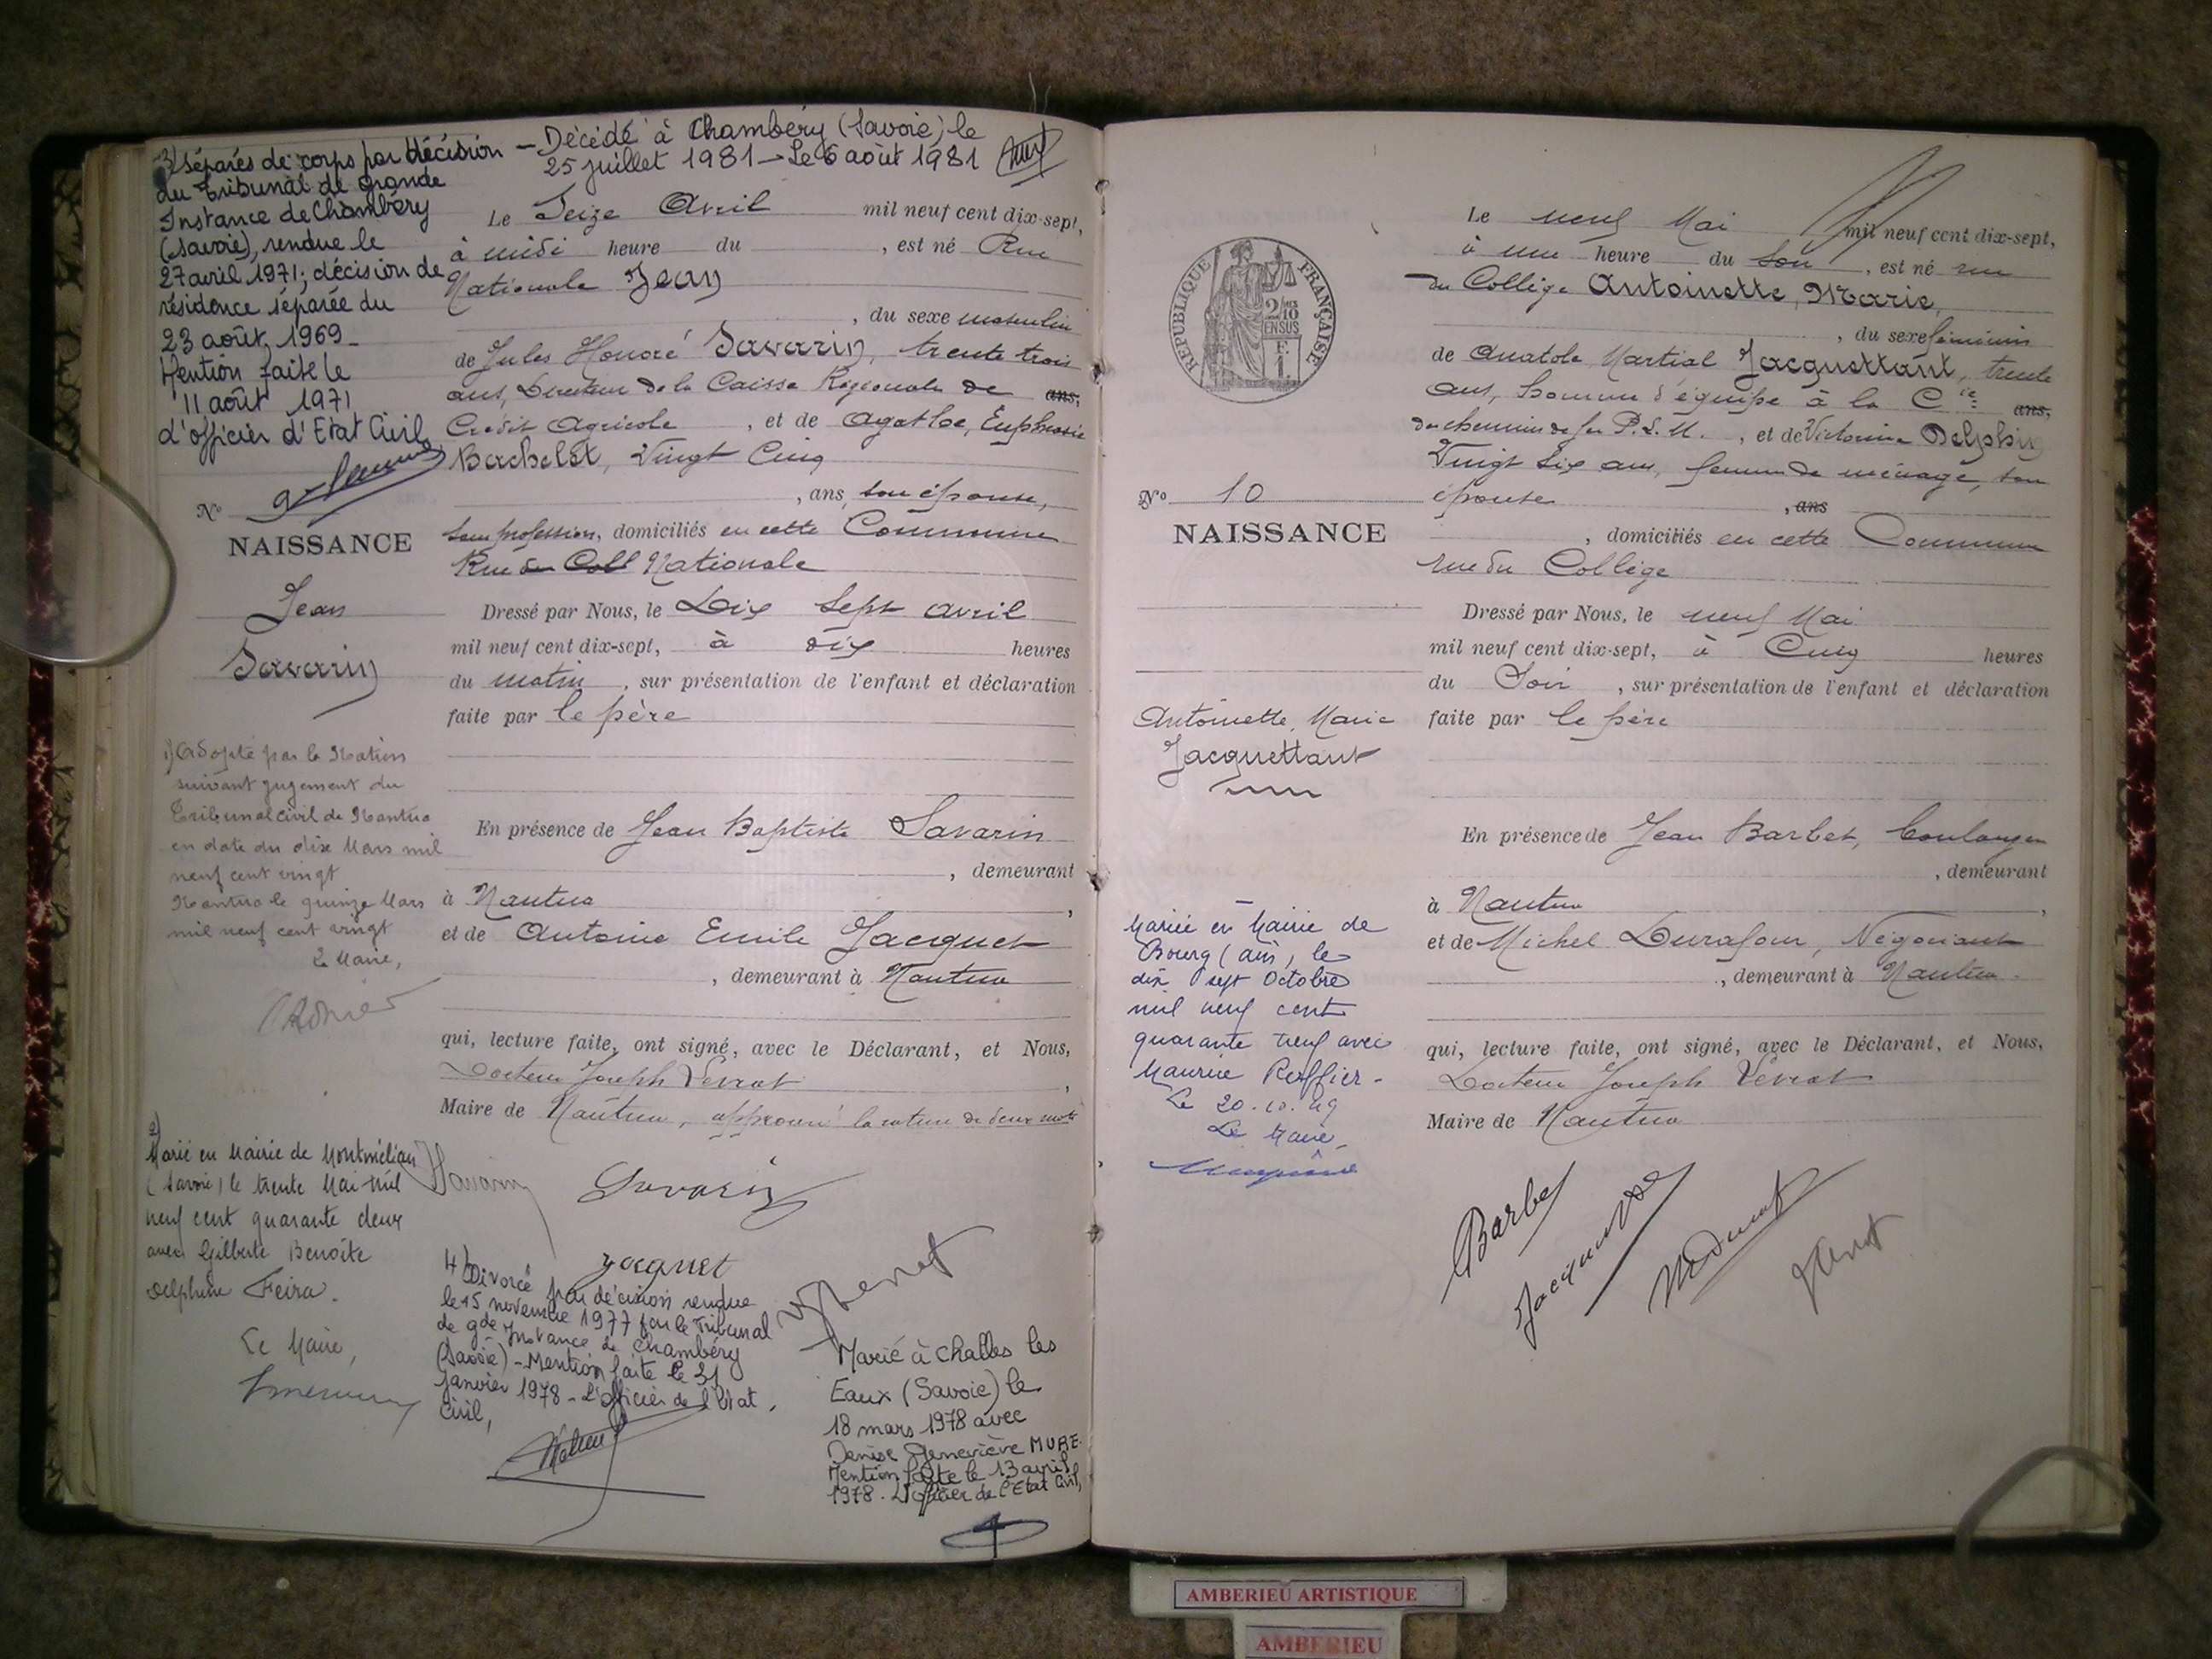 3) Séparés de corps par décision
du Tribunal de grande
Instance de Chambéry
(Savoie), rendue le
27 avril 1971; décision de
résidence séparée du
23 août 1969 -
Mention faite le
11 août 1971
d'officier d'Etat Civil,
N°
NAISSANCE
Jean
Savarin
1) Adopté par la Nation
suivant jugement du
Tribunal civil de Nantua
en date du dix Mars mil
neuf cent vingt
Nantua le quinze Mars
mil neuf cent vingt
Le Maire,
2)
Marié en Mairie de Montmélian
(Savoie) le trente Mai mil
neuf cent quarante deux
avec Gilberte Benoite
Delphine Feira.
Le Maire,
- Décédé à Chambéry (Savoie) le
25 juillet 1981 - Le 6 août 1981
Le Seize Avril mil neuf cent dix-sept,
à midi heure du , est né Rue
Nationale Jean
, du sexe masculin
de Jules Honoré Savarin, trente trois
ans, Directeur de la Caisse Régionale de ans,
Crédit Agricole , et de Agathe, Euphrosie
Bachelet, Vingt Cinq
, ans, son épouse,
sans profession, domiciliés en cette Commune
Rue du Coll Nationale
Dressé par Nous, le Dix Sept avril
mil neuf cent dix-sept, à dix heures
du matin , sur présentation de l'enfant et déclaration
faite par le père
En présence de Jean Baptiste Savarin
, demeurant
à Nantua ,
et de Antoine Emile Jacquet
, demeurant à Nantua
qui, lecture faite, ont signé, avec le Déclarant, et Nous,
Docteur Joseph Vevrat ,
Maire de Nantua, approuvé la rature de deux mots
Savarin Savarin
Jacquet
4) Divorcé par décision rendue
le 15 novembre 1977 par le Tribunal
de gde Instance de Chambéry
(Savoie) - Mention faite le 31
janvier 1978 - L'officier de l'Etat
Civil,
Marié à Challes les
Eaux (Savoie) le
18 mars 1978 avec
Denise Geneviève MURE-
Mention faite le 13 avril
1978. L'officier de l'Etat Civil,
RÉPUBLIQUE FRANÇAISE
2/10
EN SUS
E.
1.
N° 10
NAISSANCE
Antoinette, Marie
Jacquettant
Mariée en Mairie de
Bourg (Ain), le
dix sept Octobre
mil neuf cent
quarante neuf avec
Maurice Ruffier -
Le 20.10.49
Le Maire,
Le neuf Mai mil neuf cent dix-sept,
à une heure du soir , est né rue
du Collège Antoinette, Marie,
, du sexe féminin
de Anatole Martial Jacquettant, trente
ans, homme d'équipe à la Cie ans,
des chemins de fer P.L.M. , et de Victorine Delphin
Vingt six ans, femme de ménage, son
épouse , ans
, domiciliés en cette Commune
rue du Collège
Dressé par Nous, le neuf Mai
mil neuf cent dix-sept, à Cinq heures
du Soir , sur présentation de l'enfant et déclaration
faite par le père
En présence de Jean Barbet, boulanger
, demeurant
à Nantua ,
et de Michel Durafour, Négociant
, demeurant à Nantua.
qui, lecture faite, ont signé, avec le Déclarant, et Nous,
Docteur Joseph Vevrat
Maire de Nantua
Barbet
AMBERIEU ARTISTIQUE
AMBERIEU